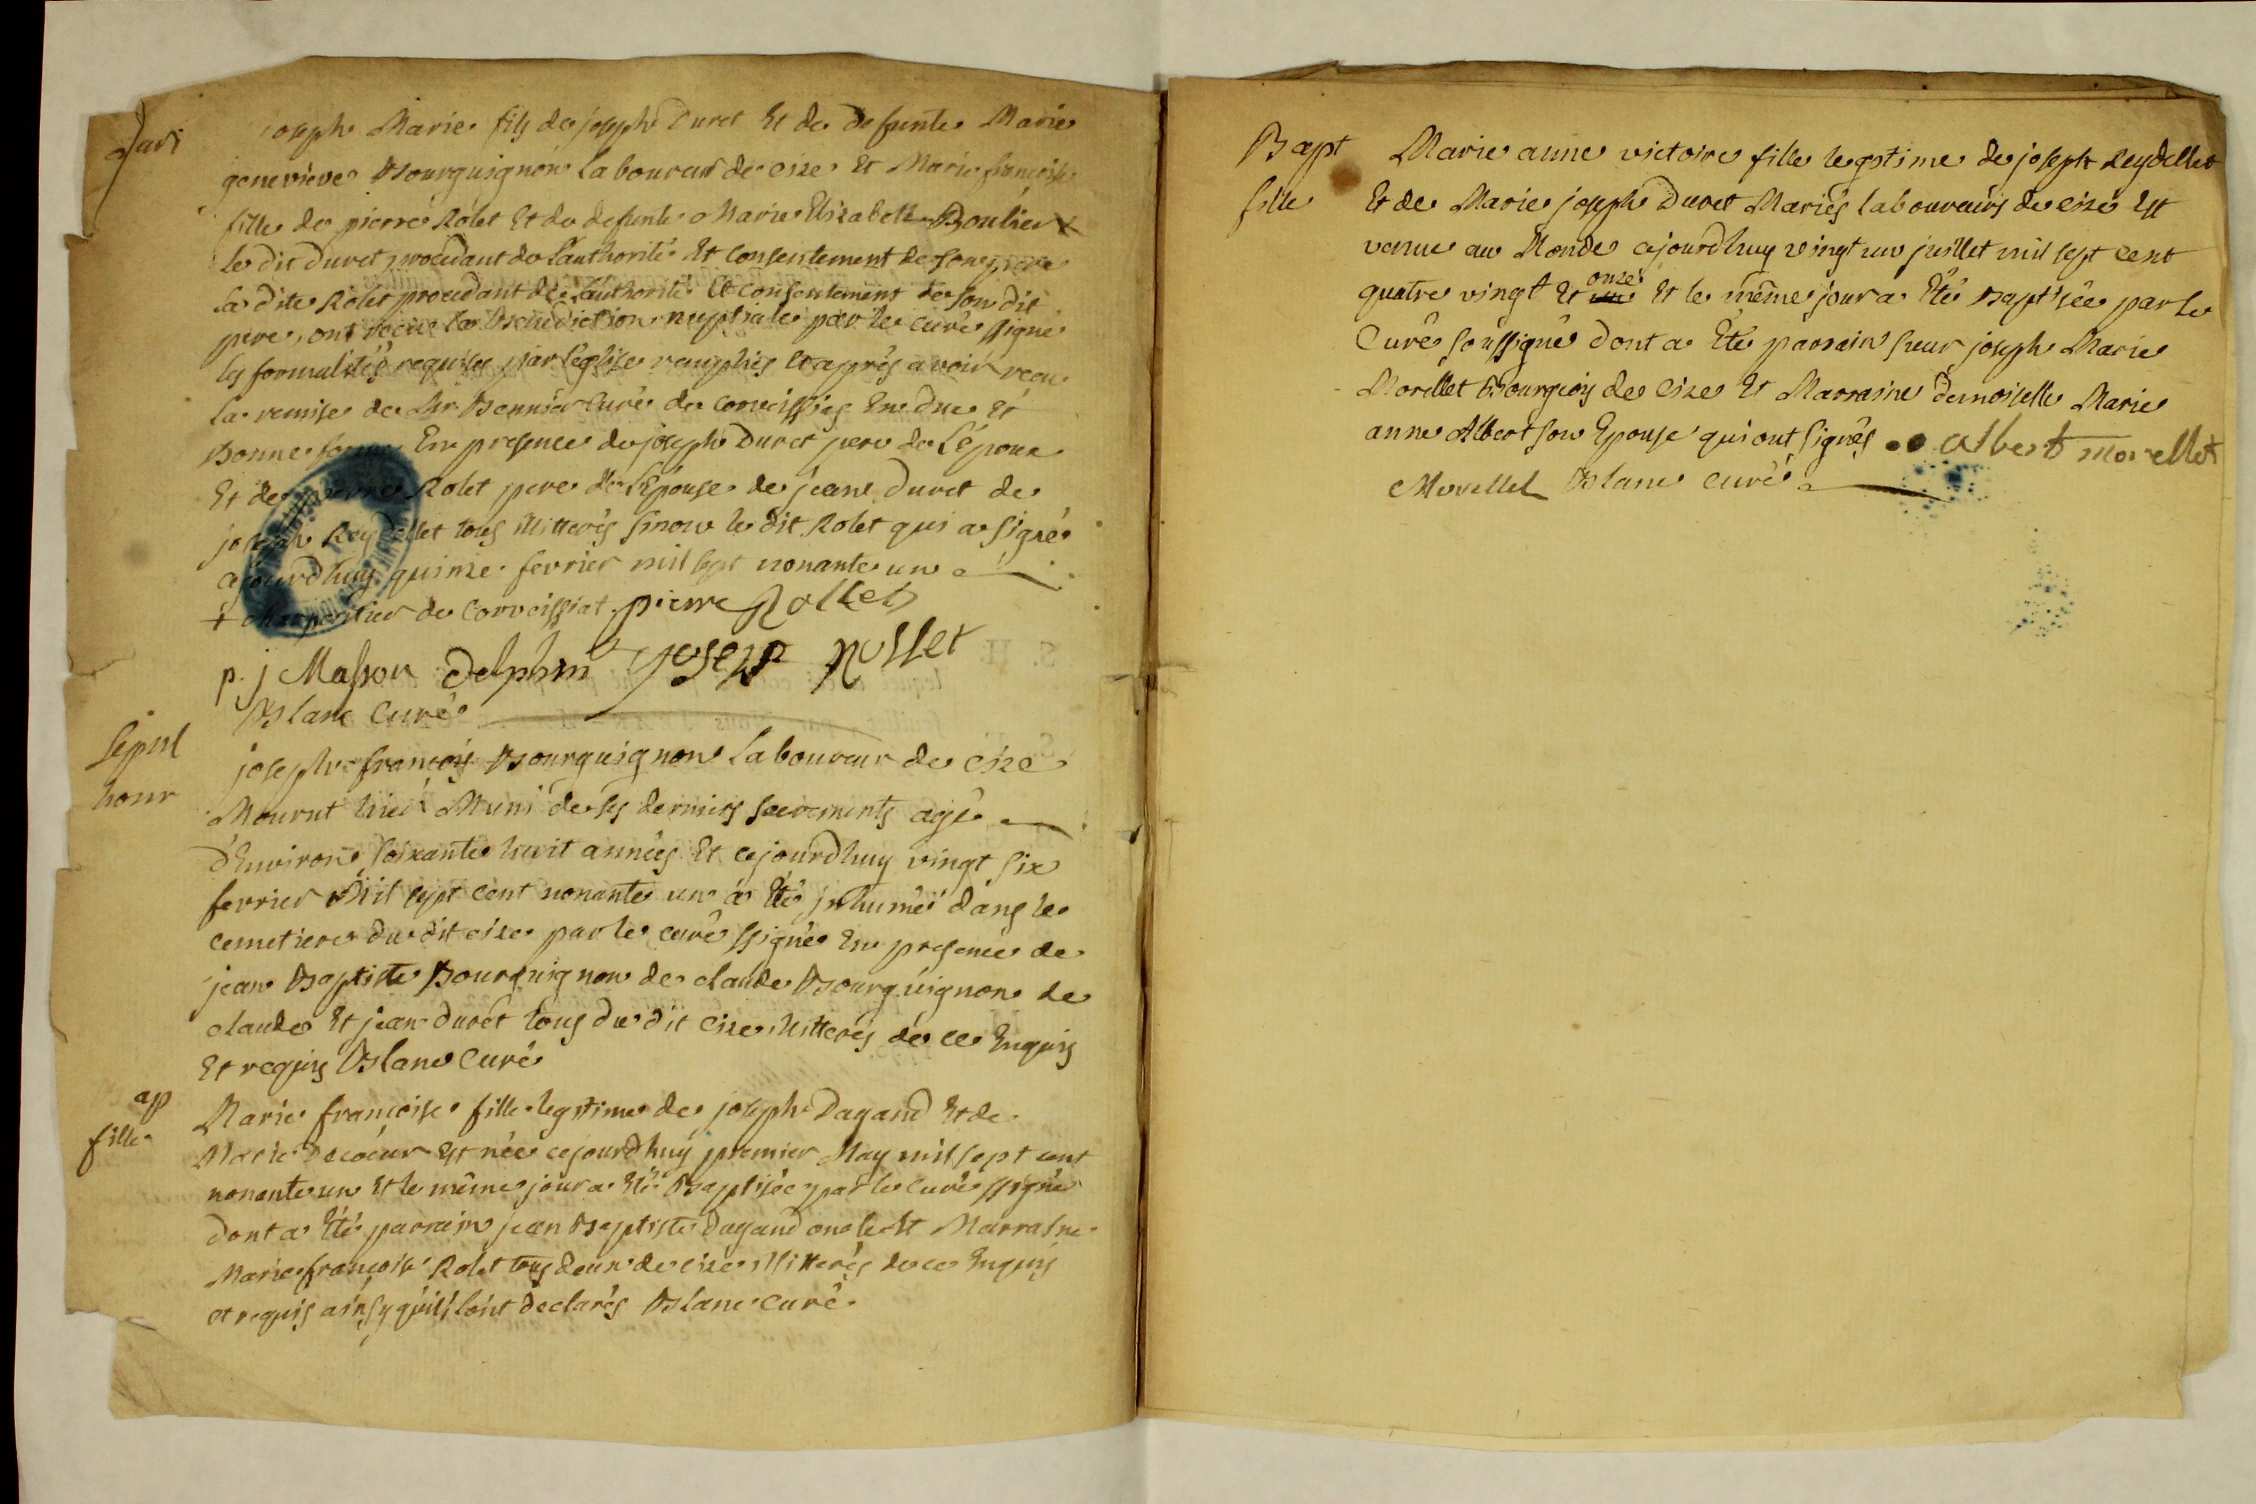 Mari
joseph Marie fils de joseph Duret Et de defunte Marie
genevieve Bourguignon laboureur de cize Et Marie françoise
fille de pierre Rolet Et de defunte Marie Elizabeth Boulier +
le dit Duret procedant de l'authorité Et consentement de son pere
la dite Rolet procedant de l'authorité Et consentement de son dit
pere, ont recue la Benediction nuptiale par le curé ssigné
les formalités requises par l'eglise remplies Et aprés avoir recu
la remise de Mr Bonnier curé de corveissiat En due Et
Bonne forme En presence de joseph Duret pere de L'époux
Et de pierre Rolet pere de L'épouse de jean Duret de
joseph Reydellet tous illitterés sinon le dit Rolet qui a signé
cejourdhuy quinze fevrier mil sept nonante un
+ charpentier de Corveissiat pierre Rollet
p. j Masson Delphin joseph Rollet
Blanc curé
Sepul
hour
joseph françois Bourguignon laboureur de cize
Mourut hier Muni de ses derniers sacrements agé
d'Environ soixante huit années Et cejourdhuy vingt six
fevrier Mil sept cent nonante un a Eté jnhumé dans le
cemetiere du dit cize par le curé ssigné En presence de
jean Baptiste Bourguignon de claude Bourguignon de
claude Et jean duret tous du dit cize illitterés de ce Enquis
Et requis Blanc curé
ap
fille
Marie françoise fille legitime de joseph Dagand Et de
Marie Decoeur Est née cejourdhuy premier May mil sept cent
nonante un Et le même jour a Eté Baptisée par le curé ssigné
dont a Eté parrain jean Baptiste Dagand oncle Et Marraine
Marie françoise Rolet tous deux de cize illitterés de ce Enquis
et requis ainsy qu'ils l'ont declarés Blanc curé
Bapt
fille
Marie anne victoire fille legitime de joseph Reydellet
Et de Marie joseph Duret Mariés laboureurs de cize Est
venue au Monde cejourdhuy vingt un juillet mil sept cent
quatre vingt Et onze Et le même jour a Eté Baptisée par le
Curé soussigné dont a Eté parrain sieur joseph Marie
Morellet Bourgeois de Cize Et Marraine demoiselle Marie
anne Albert son Epouse qui ont signés Albert morellet
Morellet Blanc curé